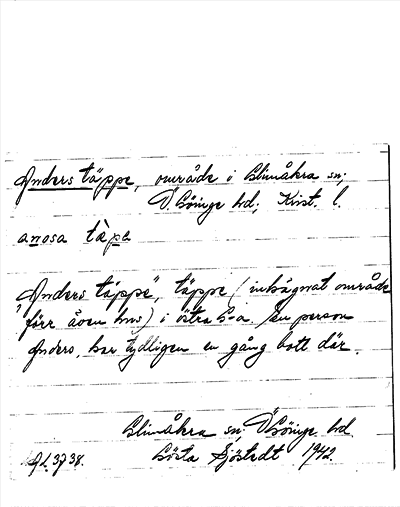 Anders täppe, område i Glimåkra sn;
Ö. Göinge hd; Krist. l.
anosa täpa
"Anders täppe", täppe (inhägnat område
förr även hus) i östra G-a. En person
Anders, har tydligen en gång bott där.
Glimåkra sn; Ö Göinge hd.
Gösta Sjöstedt 1942.
AL 3738.